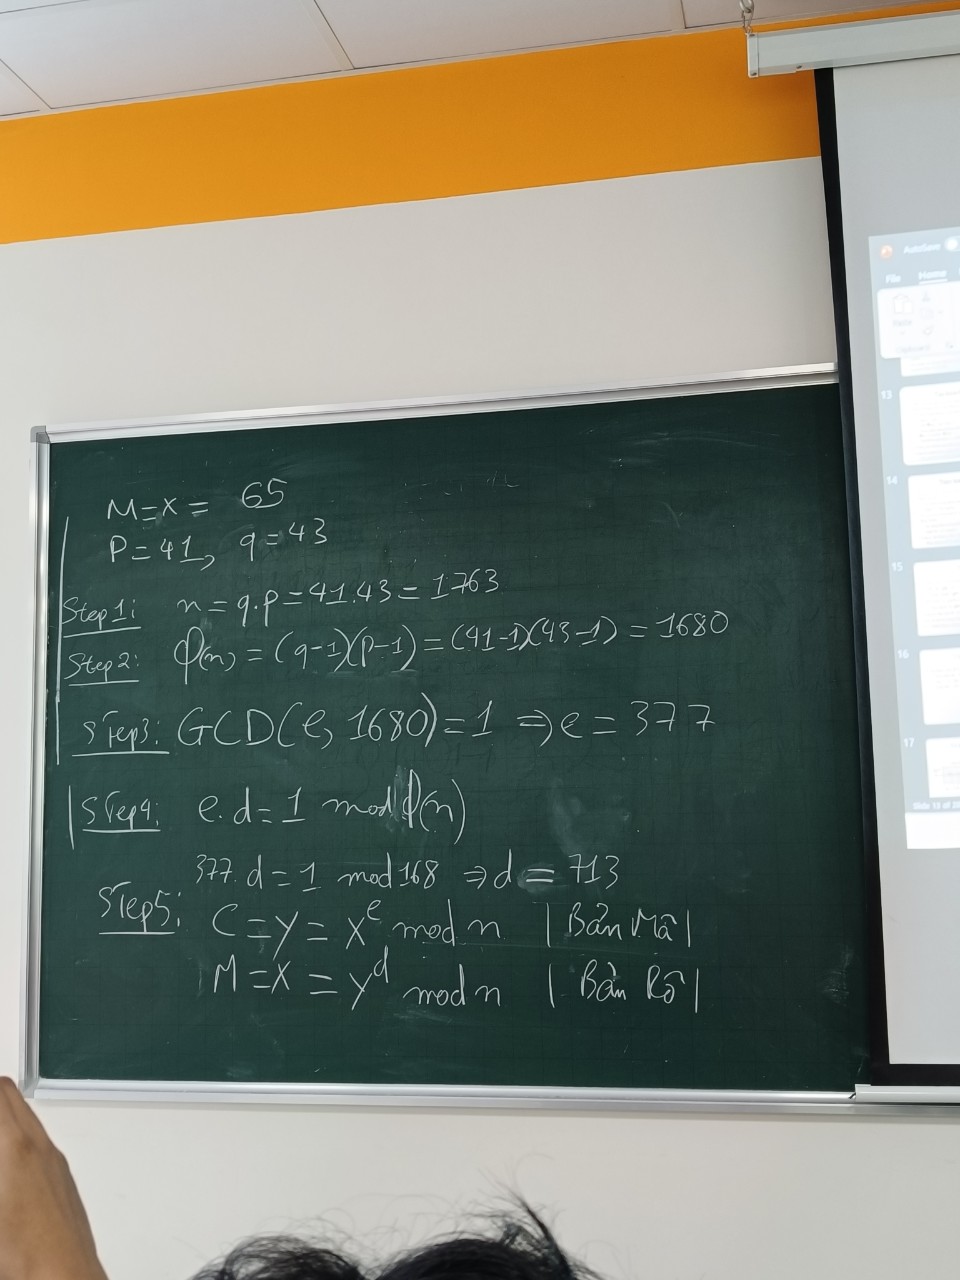 M=X= 65
P=41, q=43
Step 1: n=q.p=41.43=1763
Step 2: φ(n)=(q-1)(p-1)=(41-1)(43-1)=1680
STep3: GCD(e, 1680)=1 ⇒ e=377
STep4: e.d=1 mod φ(n)
377.d=1 mod 168 ⇒ d=713
STep5: C=y=x^e mod n | Bản Mã |
M=X=y^d mod n | Bản Rõ |
AutoSave
File Home
13
14
15
16
17